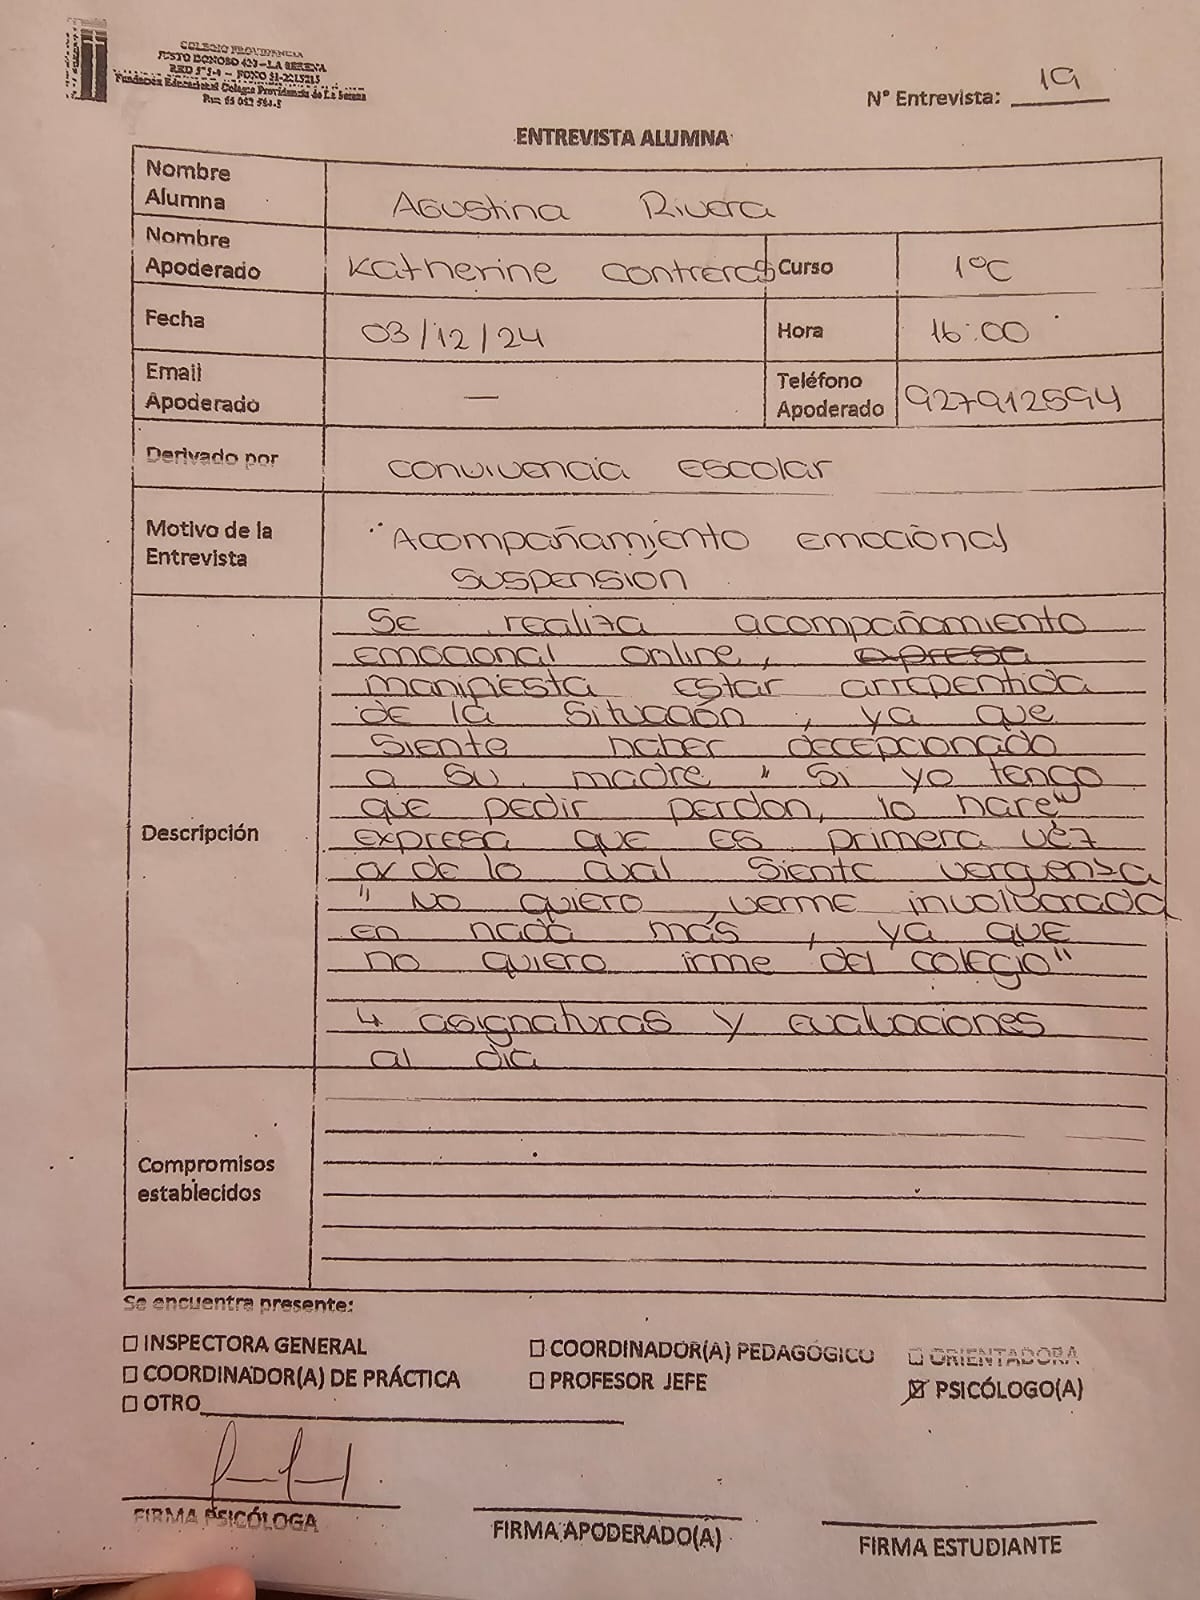 COLEGIO PROVIDENCIA
JUSTO DONOSO 420 – LA SERENA
RBD 575-4 – FONO 51-2215215
Fundación Educacional Colegio Providencia de La Serena
Rut: 65 062 564-5
N° Entrevista: 19
ENTREVISTA ALUMNA
Nombre Alumna Agustina Rivera
Nombre Apoderado Katherine Contreras Curso 1°C
Fecha 03/12/24 Hora 16:00
Email Apoderado — Teléfono Apoderado 927912594
Derivado por convivencia escolar
Motivo de la Entrevista "Acompañamiento emocional
suspensión
Descripción
Se realiza acompañamiento
emocional online, expresa
manifiesta estar arrepentida
de la situación, ya que
siente haber decepcionado
a su madre "si yo tengo
que pedir perdon, lo hare"
expresa que es primera vez
de lo cual siente verguenza
"No quiero verme involucrada
en nada más, ya que
no quiero irme del colegio"
4 asignaturas y evaluaciones
al dia
Compromisos establecidos
Se encuentra presente:
☐ INSPECTORA GENERAL ☐ COORDINADOR(A) PEDAGÓGICO ☐ ORIENTADORA
☐ COORDINADOR(A) DE PRÁCTICA ☐ PROFESOR JEFE ☒ PSICÓLOGO(A)
☐ OTRO
FIRMA PSICÓLOGA FIRMA APODERADO(A) FIRMA ESTUDIANTE